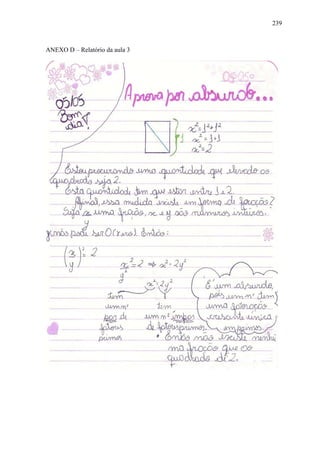 239
ANEXO D – Relatório da aula 3
05/05
Bom dia!
A prova por absurdo...
x²=1²+1²
x²=1+1
x²=2
1
Estou procurando uma quantidade que elevado ao
quadrado seja 2.
Esta quantidade tem que estar entre 1 e 2.
Afinal, essa medida existe em forma de fração?
Seja x uma fração, x e y são números inteiros.
y
y não pode ser 0 (zero). Então:
(x)² 2
(y)
x²=2 ⇒ x²=2y²
y²
x²=2y²
tem tem
um nº um nº ímpar
par de de fatores primos.
fatores
primos
É um absurdo,
pois um nº tem
uma fatoração
crescente única
em primos.
• Então não existe nenhu
ma fração que ao
quadrado dê 2.